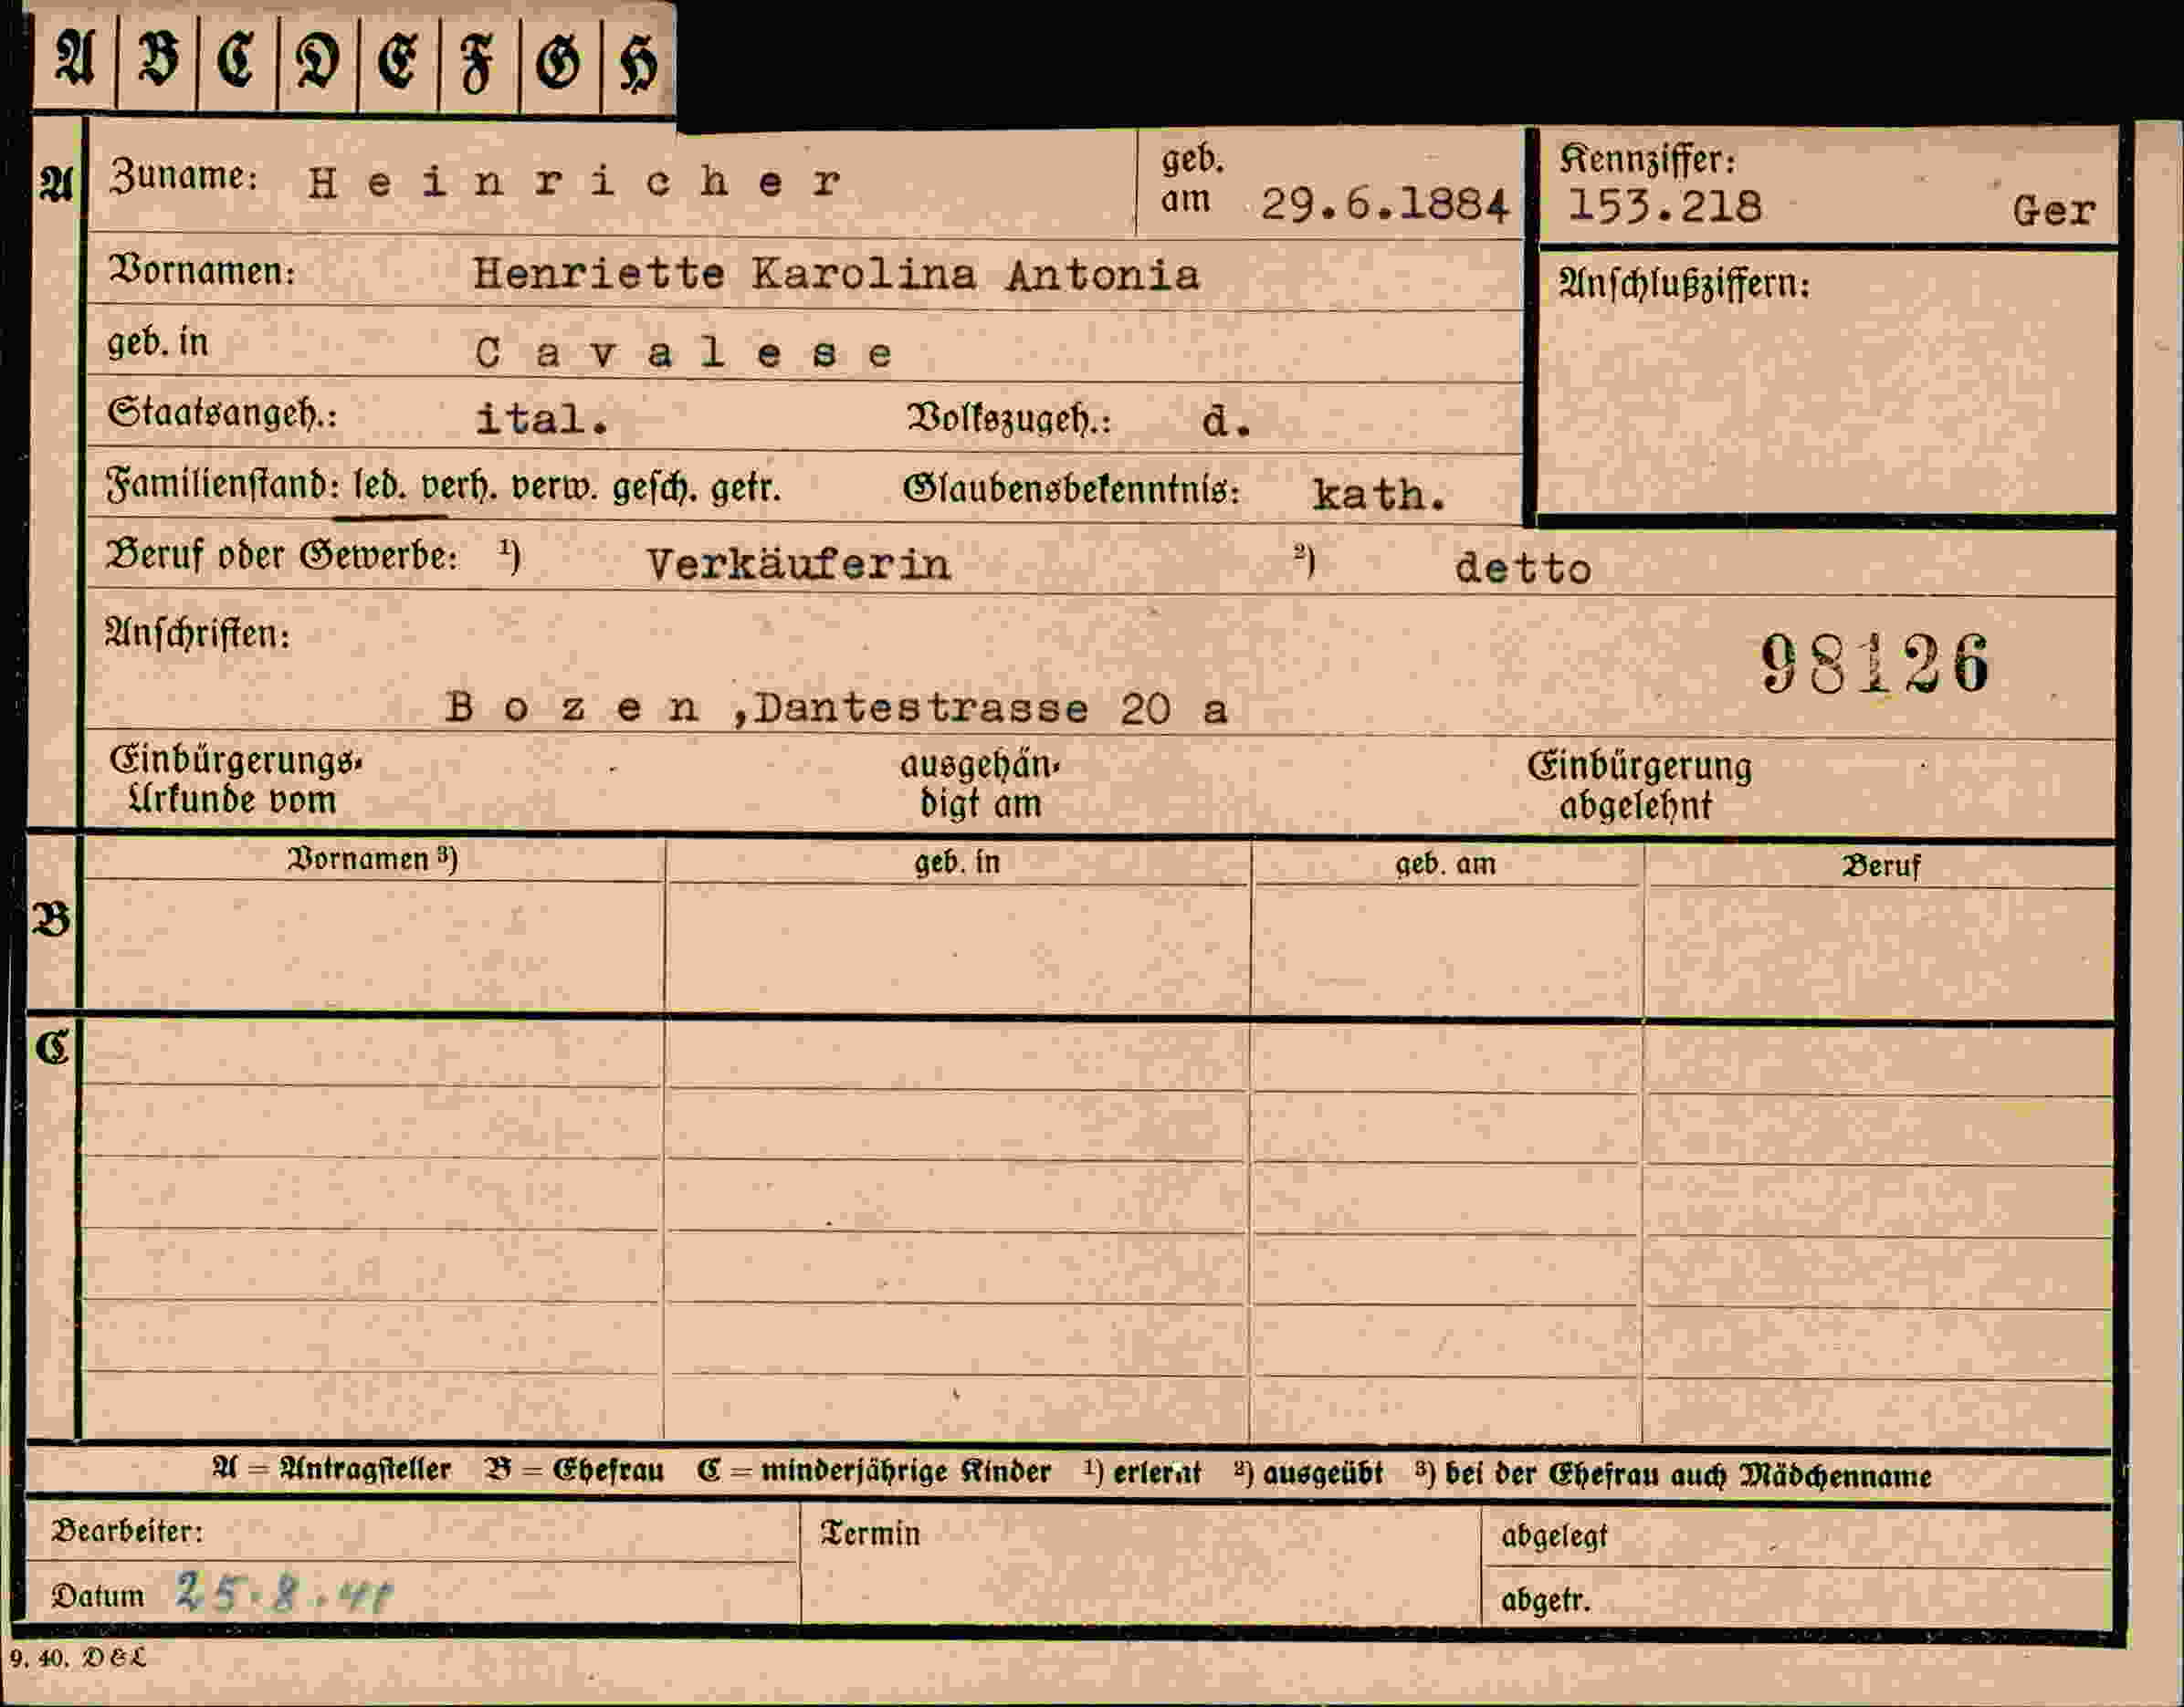 A B C D E F G H
A Zuname: Heinricher geb. am 29.6.1884 Kennziffer: 153.218 Ger
Vornamen: Henriette Karolina Antonia Anschlußziffern:
geb. in Cavalese
Staatsangeh.: ital. Volkszugeh.: d.
Familienstand: led. verh. verw. gesch. getr. Glaubensbekenntnis: kath.
Beruf oder Gewerbe: ¹) Verkäuferin ²) detto
Anschriften: 98126
Bozen ,Dantestrasse 20 a
Einbürgerungs- ausgehän- Einbürgerung
Urkunde vom digt am abgelehnt
Vornamen ³) geb. in geb. am Beruf
B
C
A = Antragsteller B = Ehefrau C = minderjährige Kinder ¹) erlernt ²) ausgeübt ³) bei der Ehefrau auch Mädchenname
Bearbeiter: Termin abgelegt
Datum 25.8.41 abgetr.
9. 40. D & L